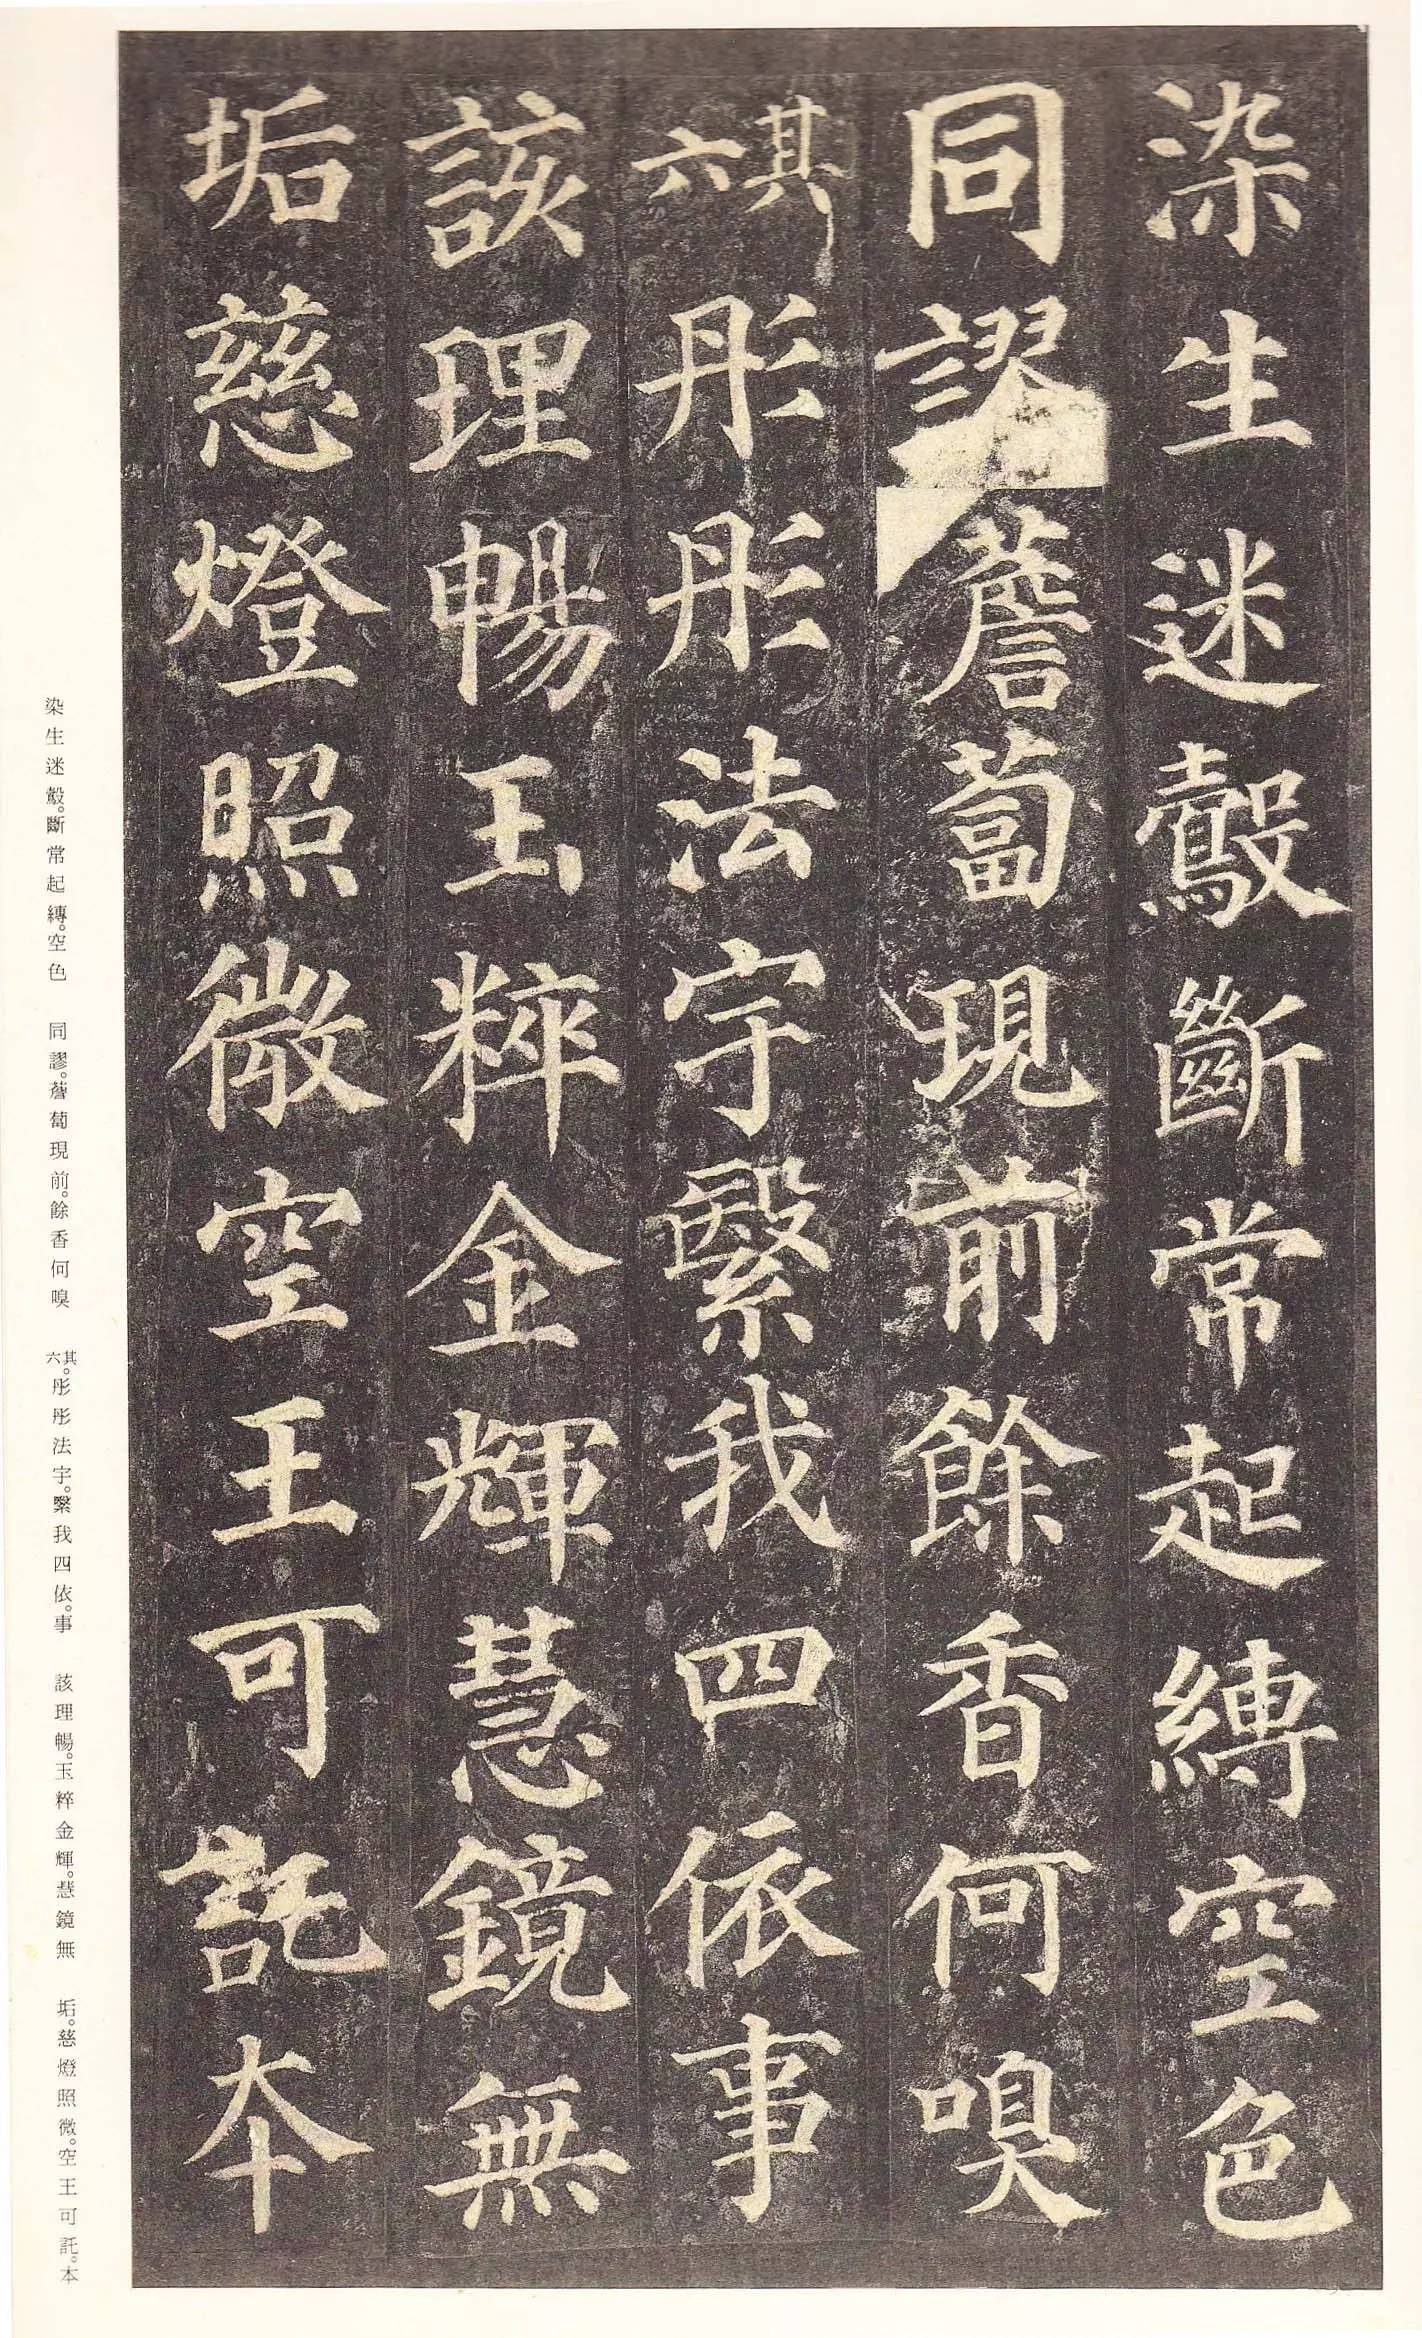 染生迷鷇斷常起縛空色
同謬薝蔔現前餘香何嗅
其六彤彤法宇繄我四依事
該理暢玉粹金輝慧鏡無
垢慈燈照微空王可託本
染生迷鷇。斷常起縛。空色　同謬。薝蔔現前。餘香何嗅　其六。彤彤法宇。繄我四依。事　該理暢。玉粹金輝。慧鏡無　垢。慈燈照微。空王可託。本